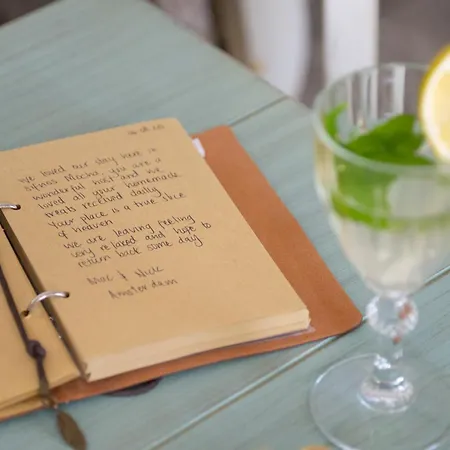 We loved our day here in
you are a
wonderful host and we
loved all your homemade
treats received daily
Your place is a true slice
of heaven
We are leaving feeling
very relaxed and hope to
return back some day
& Nick
Amsterdam